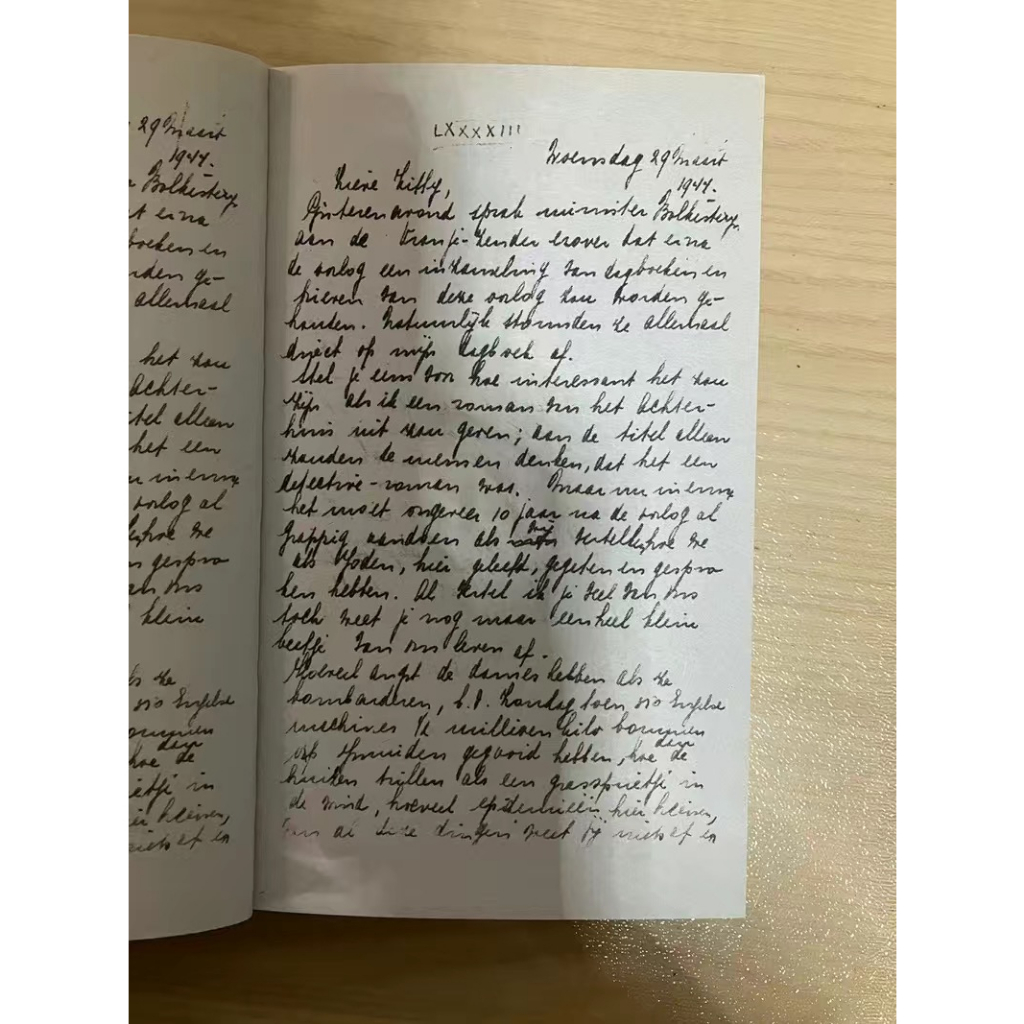 29 Maart
1944.
Bolkesteyn
t er na
boeken en
rden ge-
allemaal
het zou
Achter-
tel alleen
het een
in ernst
oorlog al
hoe we
gespro
an ons
klein
ls ze
350 Engelse
ommen
dan
hoe de
ietje in
heersen,
niets af en
LXXXXIII
Woensdag 29 Maart
1944.
Lieve Kitty,
Gisterenavond sprak minister Bolkesteyn
aan de Oranje-zender erover dat er na
de oorlog een inzameling van dagboeken en
brieven van deze oorlog zou worden ge-
houden. Natuurlijk stormden ze allemaal
direct op mijn dagboek af.
Stel je eens voor hoe interessant het zou
zijn als ik een roman van het Achter-
huis uit zou geven; aan de titel alleen
zouden de mensen denken, dat het een
detective-roman was. Maar nu in ernst
het moet ongeveer 10 jaar na de oorlog al
grappig aandoen als wij vertellen, hoe we
als Joden, hier geleefd, gegeten en gespro
ken hebben. Al vertel ik je veel van ons
toch weet je nog maar een heel klein
beetje van ons leven af.
Hoeveel angst de dames hebben als ze
bombarderen, b.v. Zondag toen 350 Engelse
machines ½ millioen kilo bommen
op Ijmuiden gegooid hebben, hoe dan de
huizen trillen als een grassprietje in
de wind, hoeveel epidemieën hier heersen,
van al deze dingen weet jij niets af en